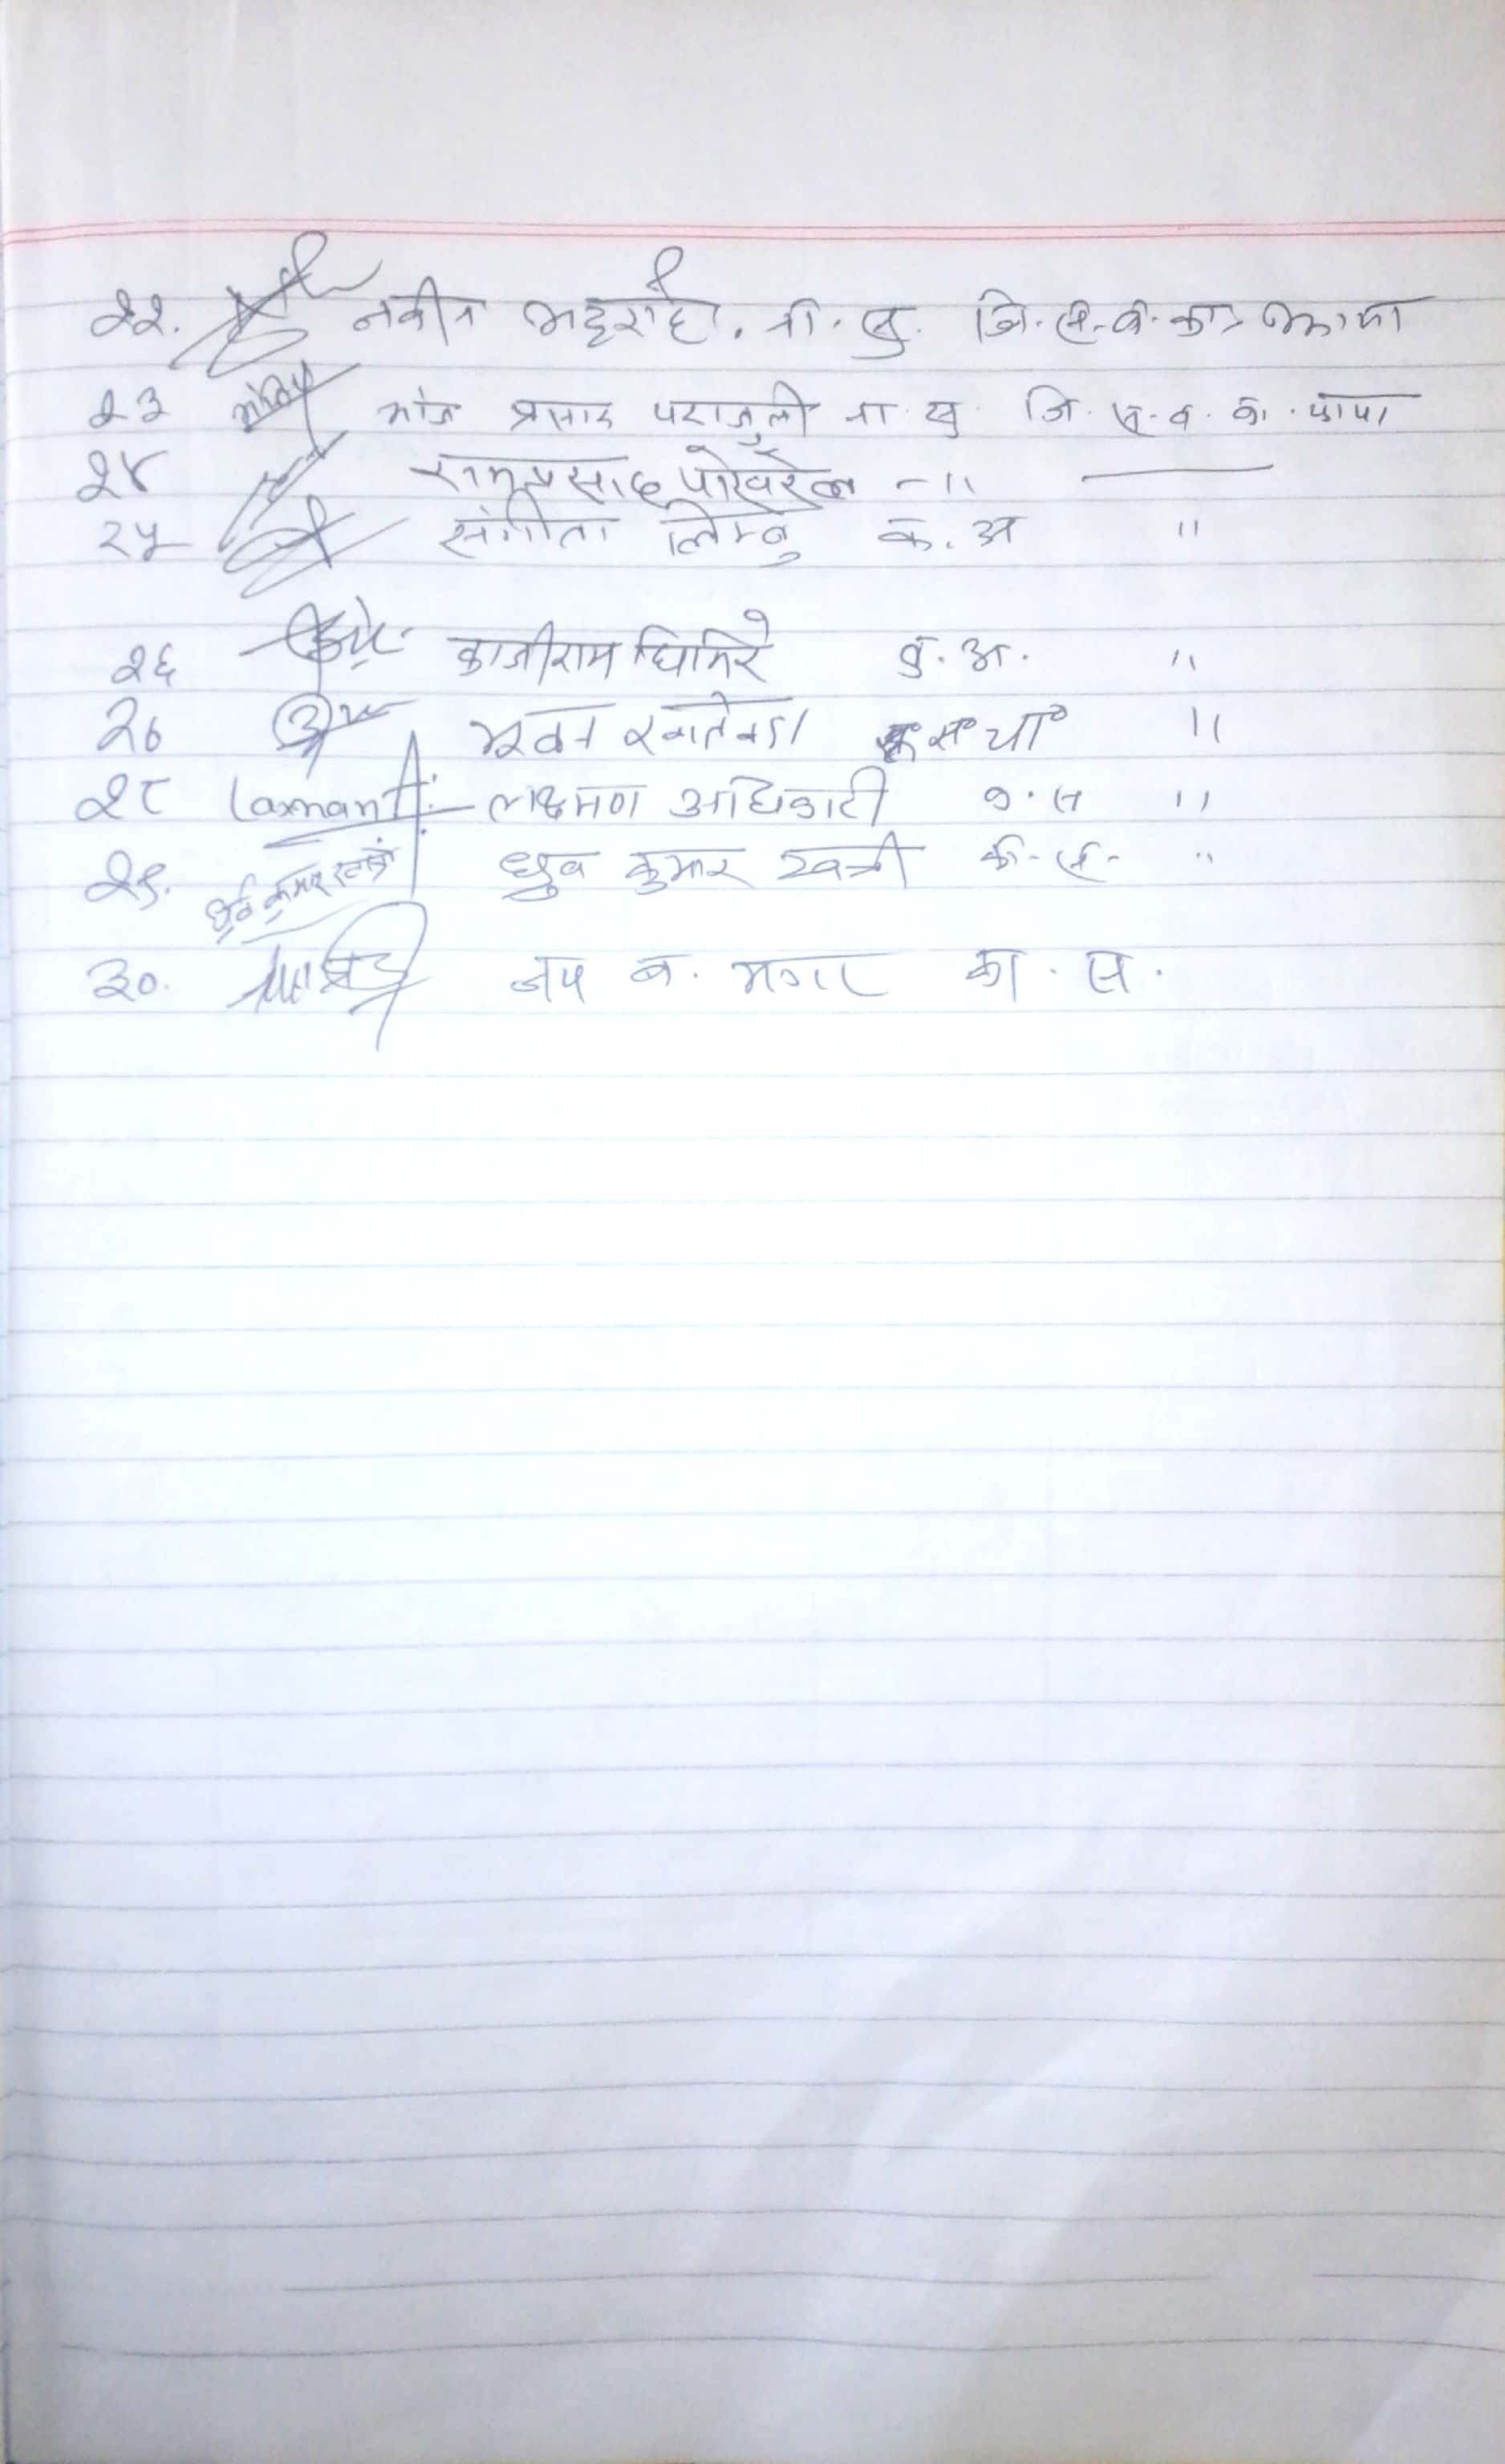 २२. नवीन भट्टराई. ना. सु. जि.स.व.का. झापा
२३ भोज प्रसाद पराजुली ना सु. जि. स. व. का. झापा
२४ रामप्रसाद पोखरेल -॥
२५ संगीता लिम्बु क. अ ॥
२६ काजीराम घिमिरे क. अ. ॥
२७ ह स चा ॥
२८ Laxman लक्ष्मण अधिकारी का. स ॥
२९. ध्रुव कुमार खत्री ध्रुव कुमार खत्री का. स. ॥
३०. जय ब. मगर का. स.